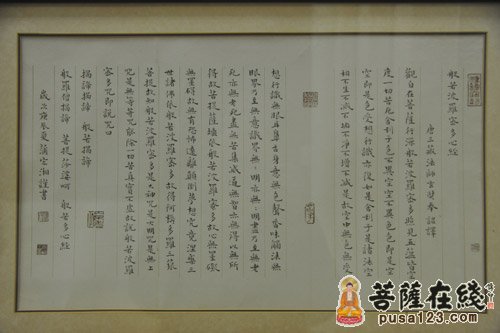 般若波羅蜜多心經
唐三藏法師玄奘奉詔譯
觀自在菩薩行深般若波羅蜜多時照見五蘊皆空
度一切苦厄舍利子色不異空空不異色色即是空
空即是色受想行識亦復如是舍利子是諸法空
相不生不滅不垢不淨不增不減是故空中無色無受
想行識無眼耳鼻舌身意無色聲香味觸法無
眼界乃至無意識界無無明亦無無明盡乃至無老
死亦無老死盡無苦集滅道無智亦無得以無所
得故菩提薩埵依般若波羅蜜多故心無罣礙
無罣礙故無有恐怖遠離顛倒夢想究竟涅槃三
世諸佛依般若波羅蜜多故得阿耨多羅三藐三
菩提故知般若波羅蜜多是大神咒是大明咒是無上
咒是無等等咒能除一切苦真實不虛故說般若波羅
蜜多咒即說咒曰
揭諦揭諦 般若揭諦
般羅僧揭諦 菩提薩婆訶 般若多心經
歲次庚辰夏 湘謹書
菩薩在綫
pusa123.com